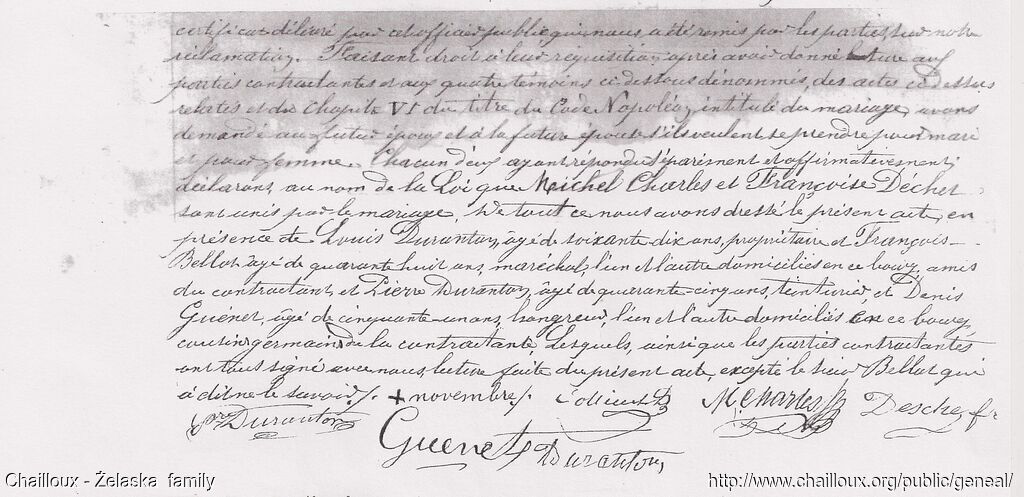 certificat délivré par cet officier public qui nous a été remis par les parties, sur notre
réclamation. Faisant droit à leur réquisition, après avoir donné lecture aux
parties contractantes et aux quatre témoins ci dessous dénommés, des actes ci dessus
relatés et du chapitre VI du titre du Code Napoléon, intitulé du mariage, avons
demandé au futur époux et à la future épouse s'ils veulent se prendre pour mari
et pour femme. Chacun d'eux ayant répondu séparément et affirmativement,
déclarons au nom de la Loi que Michel Charles et Françoise Déchet
sont unis par le mariage. De tout ce nous avons dressé le présent acte, en
présence de Louis Duranton, âgé de soixante dix ans, propriétaire et François
Bellot âgé de quarante huit ans, maréchal, l'un et l'autre domiciliés en ce bourg, amis
du contractant, et Pierre Duranton, âgé de quarante cinq ans, teinturier, et Denis
Guenet, âgé de cinquante un ans, hongreur, l'un et l'autre domiciliés en ce bourg
cousins germains de la contractante. Lesquels, ainsi que les parties contractantes
ont tous signé avec nous lecture faite du présent acte, excepté le sieur Bellot qui
a dit ne le savoir /. + novembre /. M. Charles Deschet fr
pre Duranton
Guenet Duranton
Chailloux - Żelaska family
http://www.chailloux.org/public/geneal/